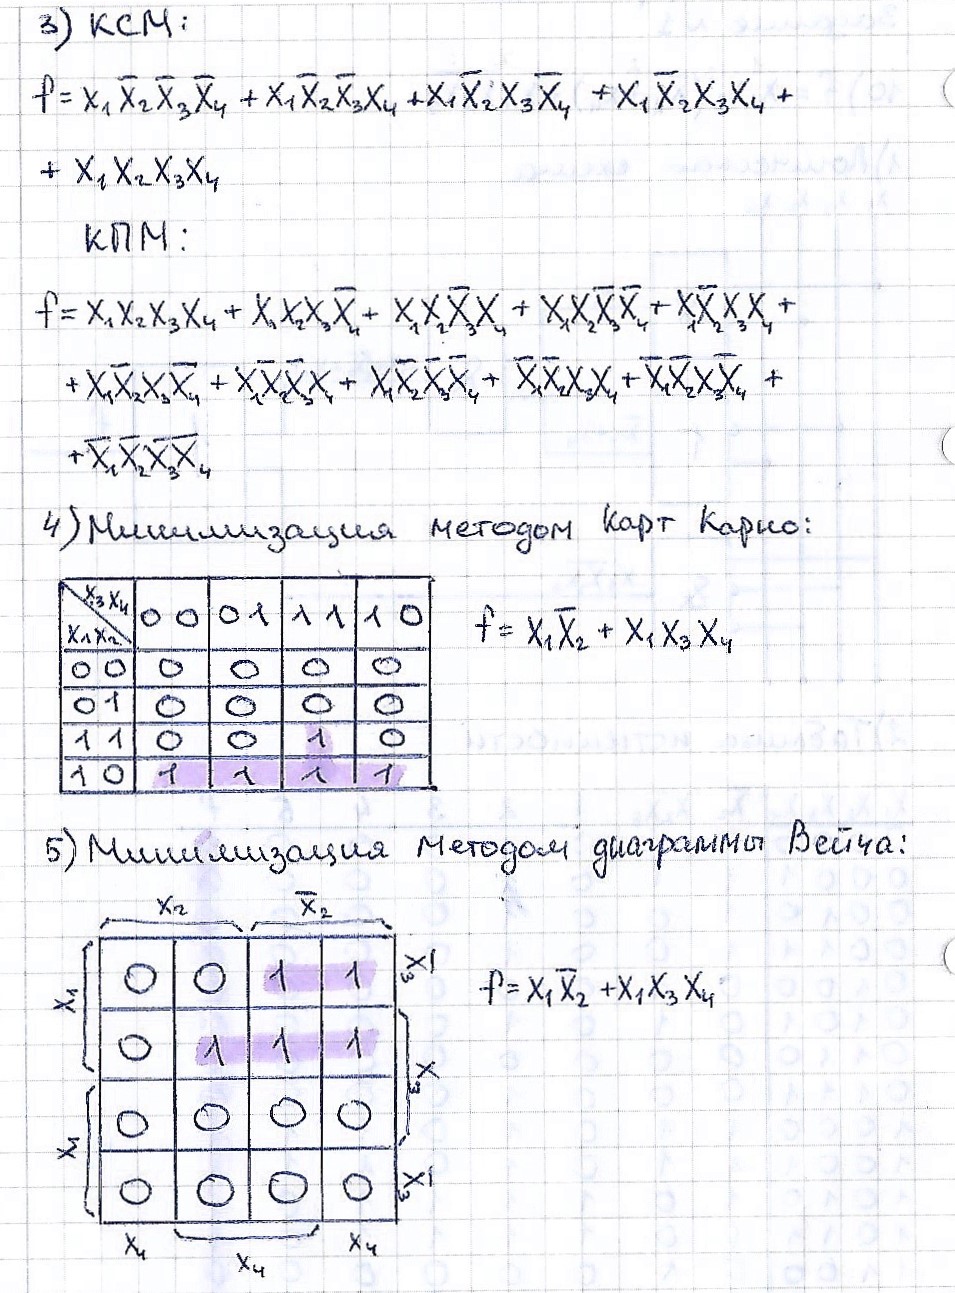 3) КСМ:
f = x₁x̅₂x̅₃x̅₄ + x₁x̅₂x̅₃x₄ + x₁x̅₂x₃x̅₄ + x₁x̅₂x₃x₄ +
+ x₁x₂x₃x₄
КПМ:
f = x₁x₂x₃x₄ + x₁x₂x₃x̅₄ + x₁x₂x̅₃x₄ + x₁x₂x̅₃x̅₄ + x₁x̅₂x₃x₄ +
+ x₁x̅₂x₃x̅₄ + x₁x̅₂x̅₃x₄ + x₁x̅₂x̅₃x̅₄ + x̅₁x̅₂x₃x₄ + x̅₁x̅₂x₃x̅₄ +
+ x̅₁x̅₂x̅₃x̅₄
4) Минимизация методом Карт Карно:
x₃x₄ 00 01 11 10
x₁x₂
00 0 0 0 0
01 0 0 0 0
11 0 0 1 0
10 1 1 1 1
f = x₁x̅₂ + x₁x₃x₄
5) Минимизация методом диаграммы Вейча:
x₂ x̅₂
x₁ 0 0 1 1 x̅₃
0 1 1 1 x₃
x₁ 0 0 0 0
0 0 0 0 x̅₃
x₄ x₄ x₄
f = x₁x̅₂ + x₁x₃x₄